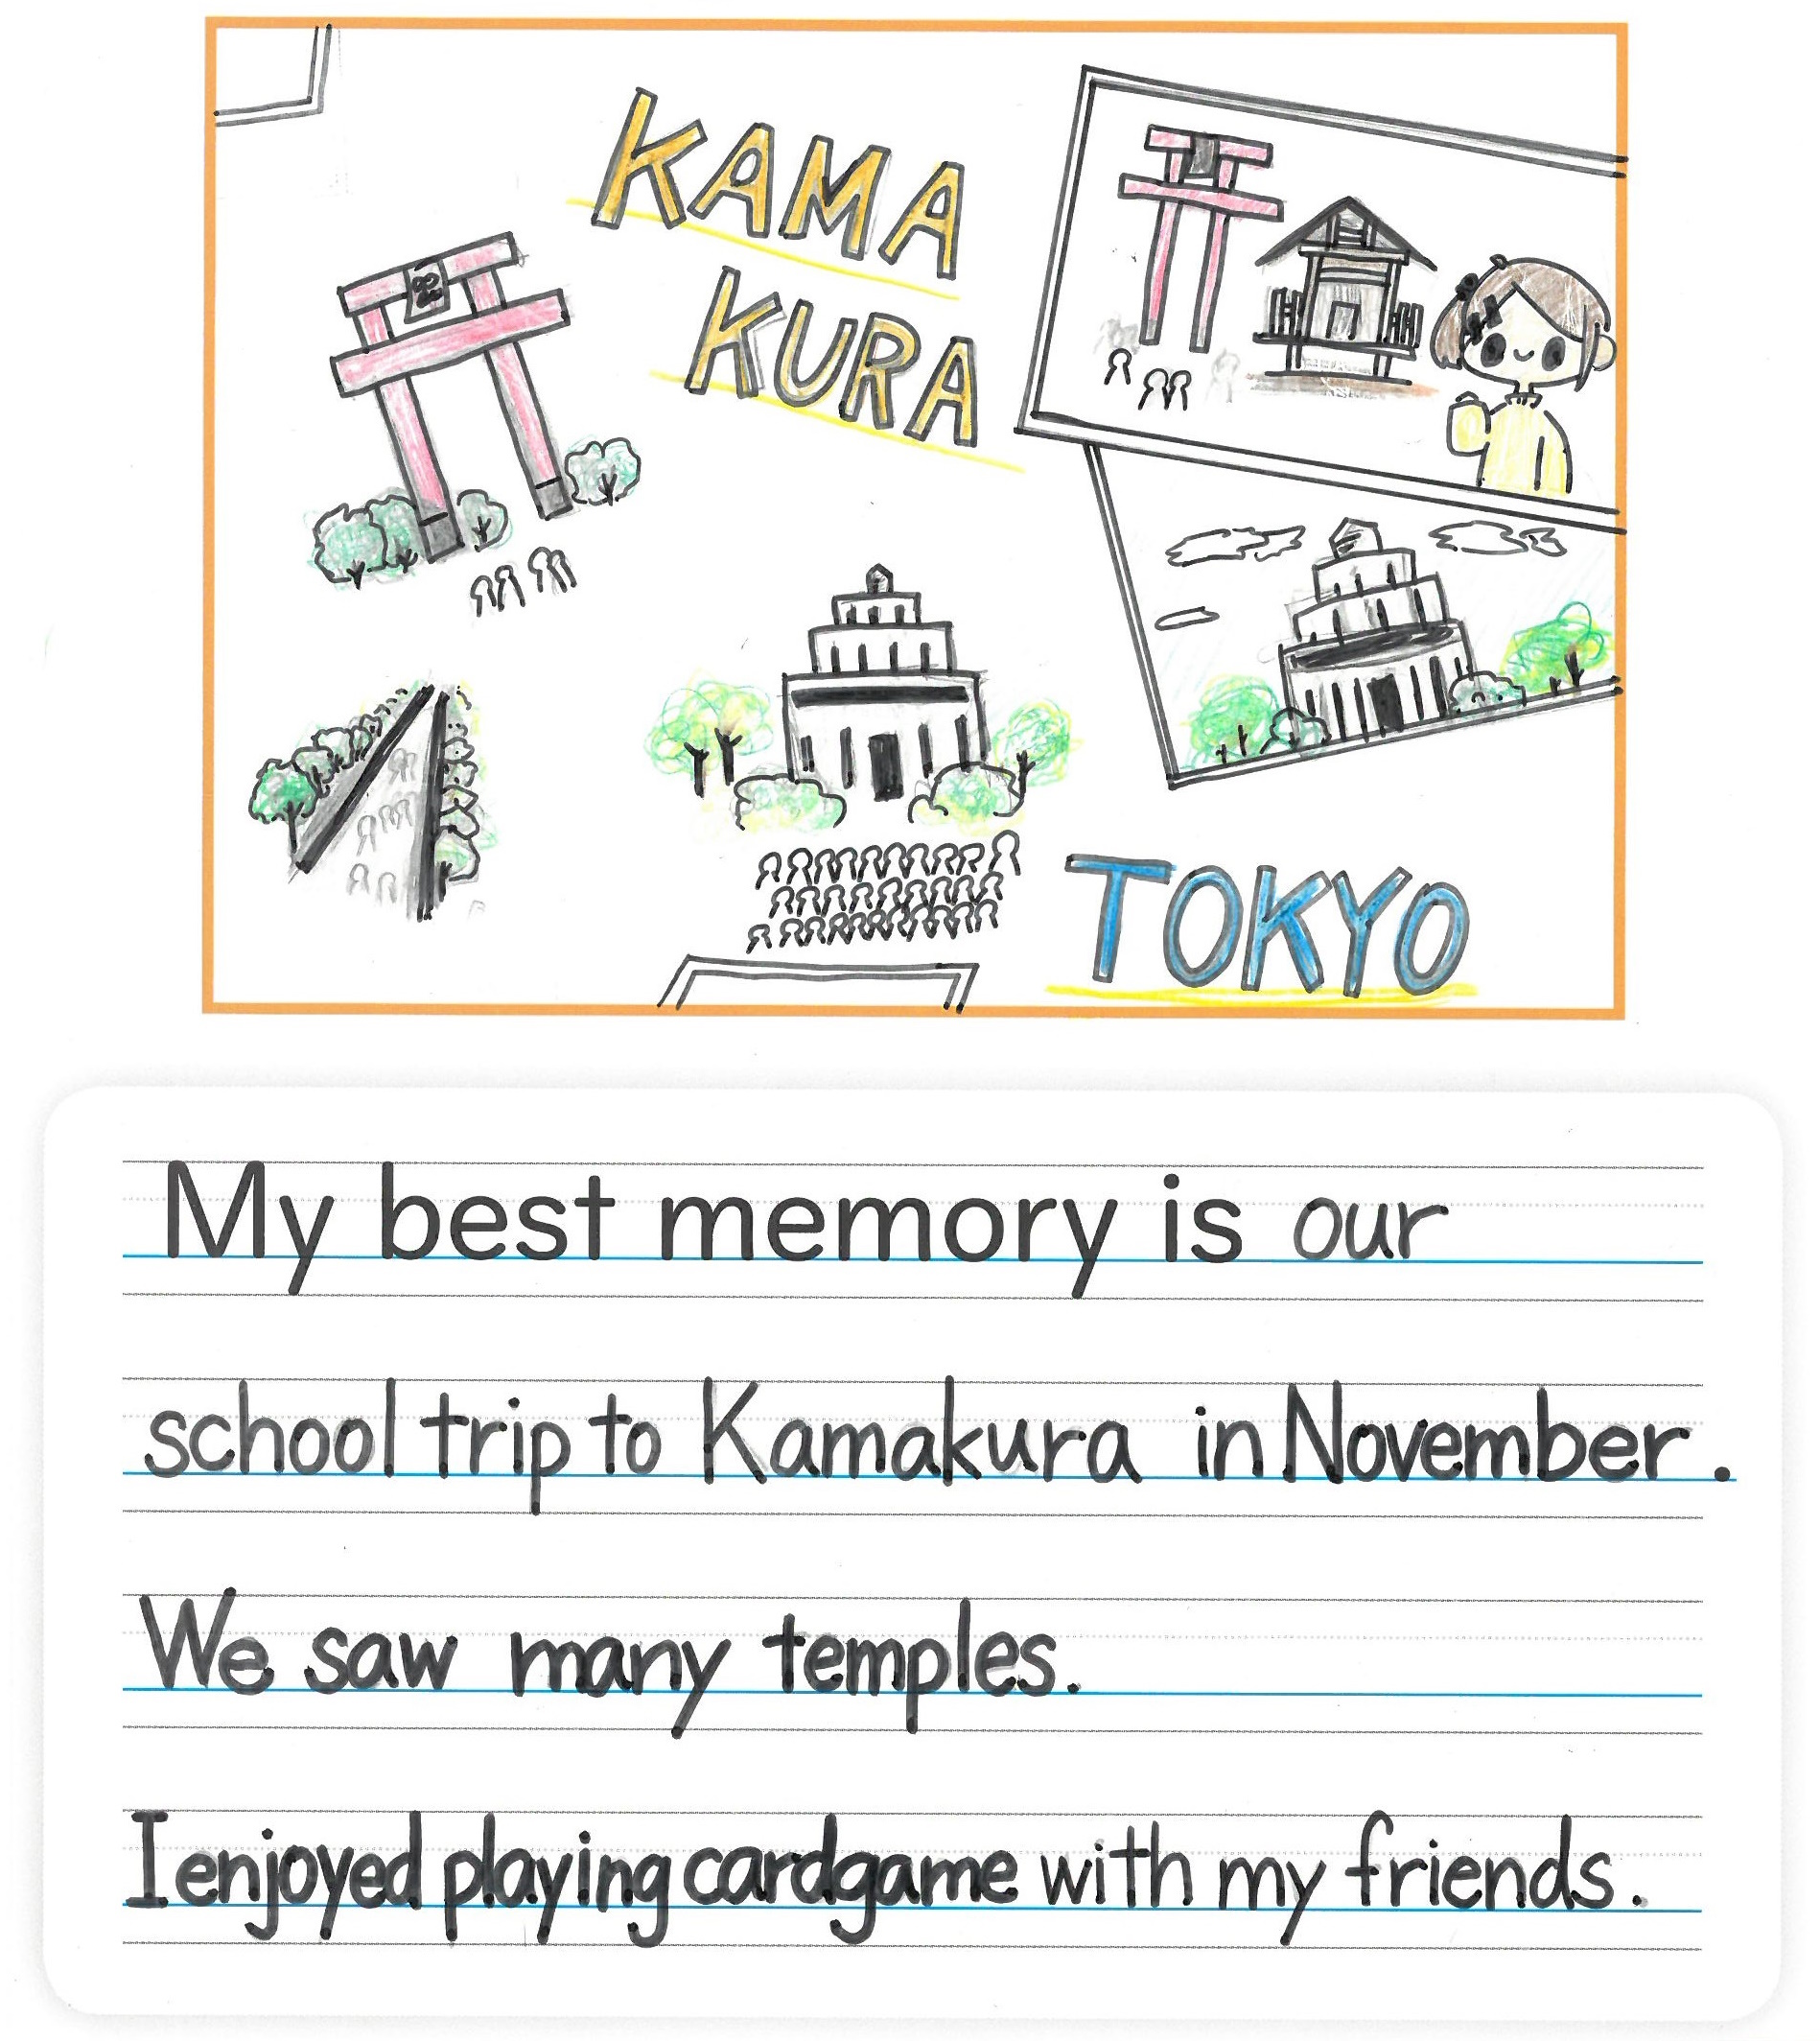 KAMA
KURA
TOKYO
My best memory is our
school trip to Kamakura in November.
We saw many temples.
I enjoyed playing cardgame with my friends.